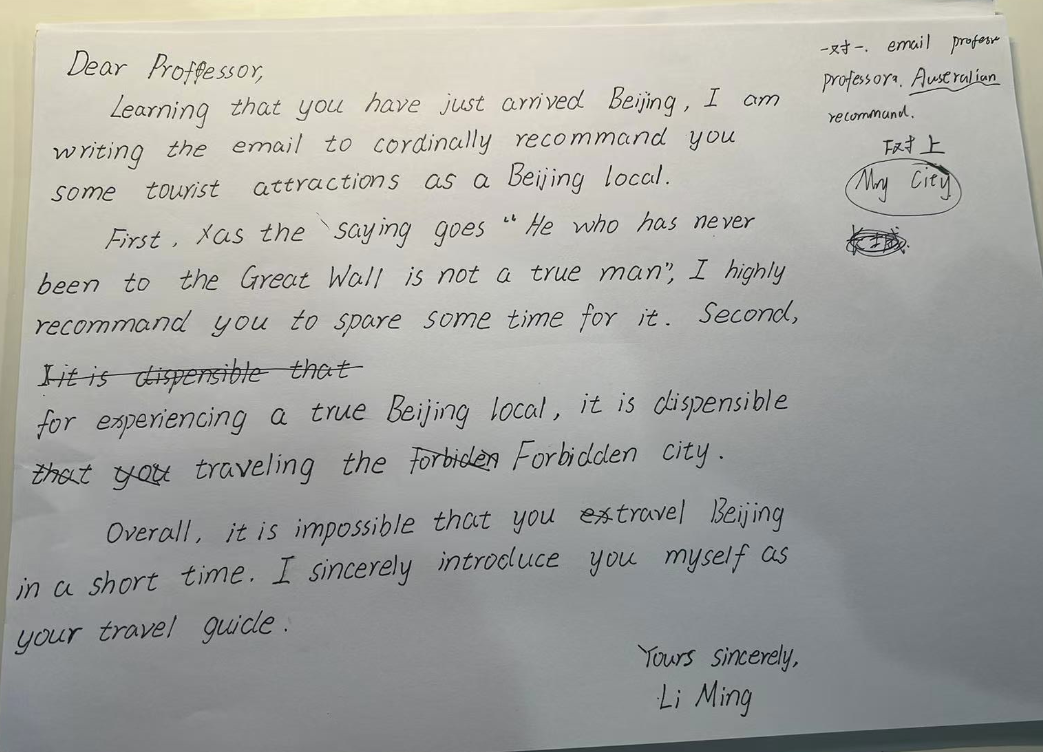 Dear Proffessor,
Learning that you have just arrived Beijing, I am
writing the email to cordinally recommand you
some tourist attractions as a Beijing local.
First, as the saying goes “He who has never
been to the Great Wall is not a true man”, I highly
recommand you to spare some time for it. Second,
I it is dispensible that
for experiencing a true Beijing local, it is dispensible
that you traveling the forbiden Forbidden city.
Overall, it is impossible that you ex travel Beijing
in a short time. I sincerely introduce you myself as
your travel guide.
Yours sincerely,
Li Ming
一对一. email profesr
professor. Australian
recommand.
My City